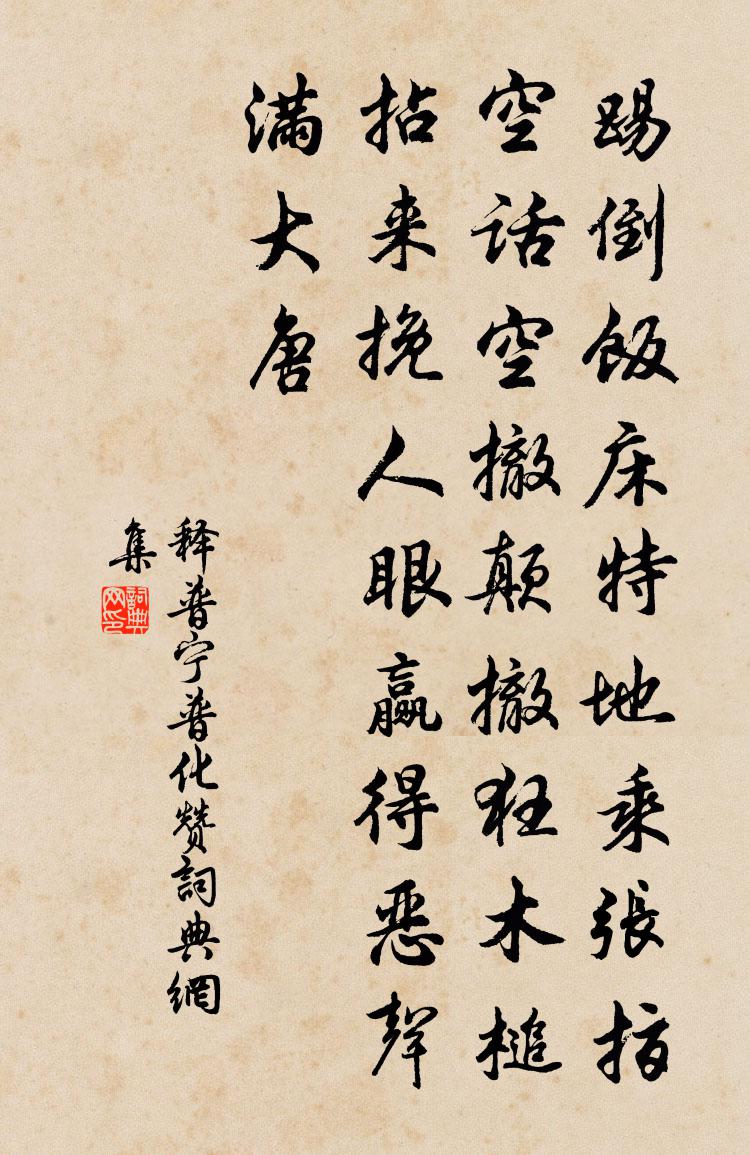 踢倒饭床特地乘张指
空话空撤颠撤狂木槌
拈来挽人眼赢得恶声
满大唐
释普宁普化赞词典网
集
词典网印